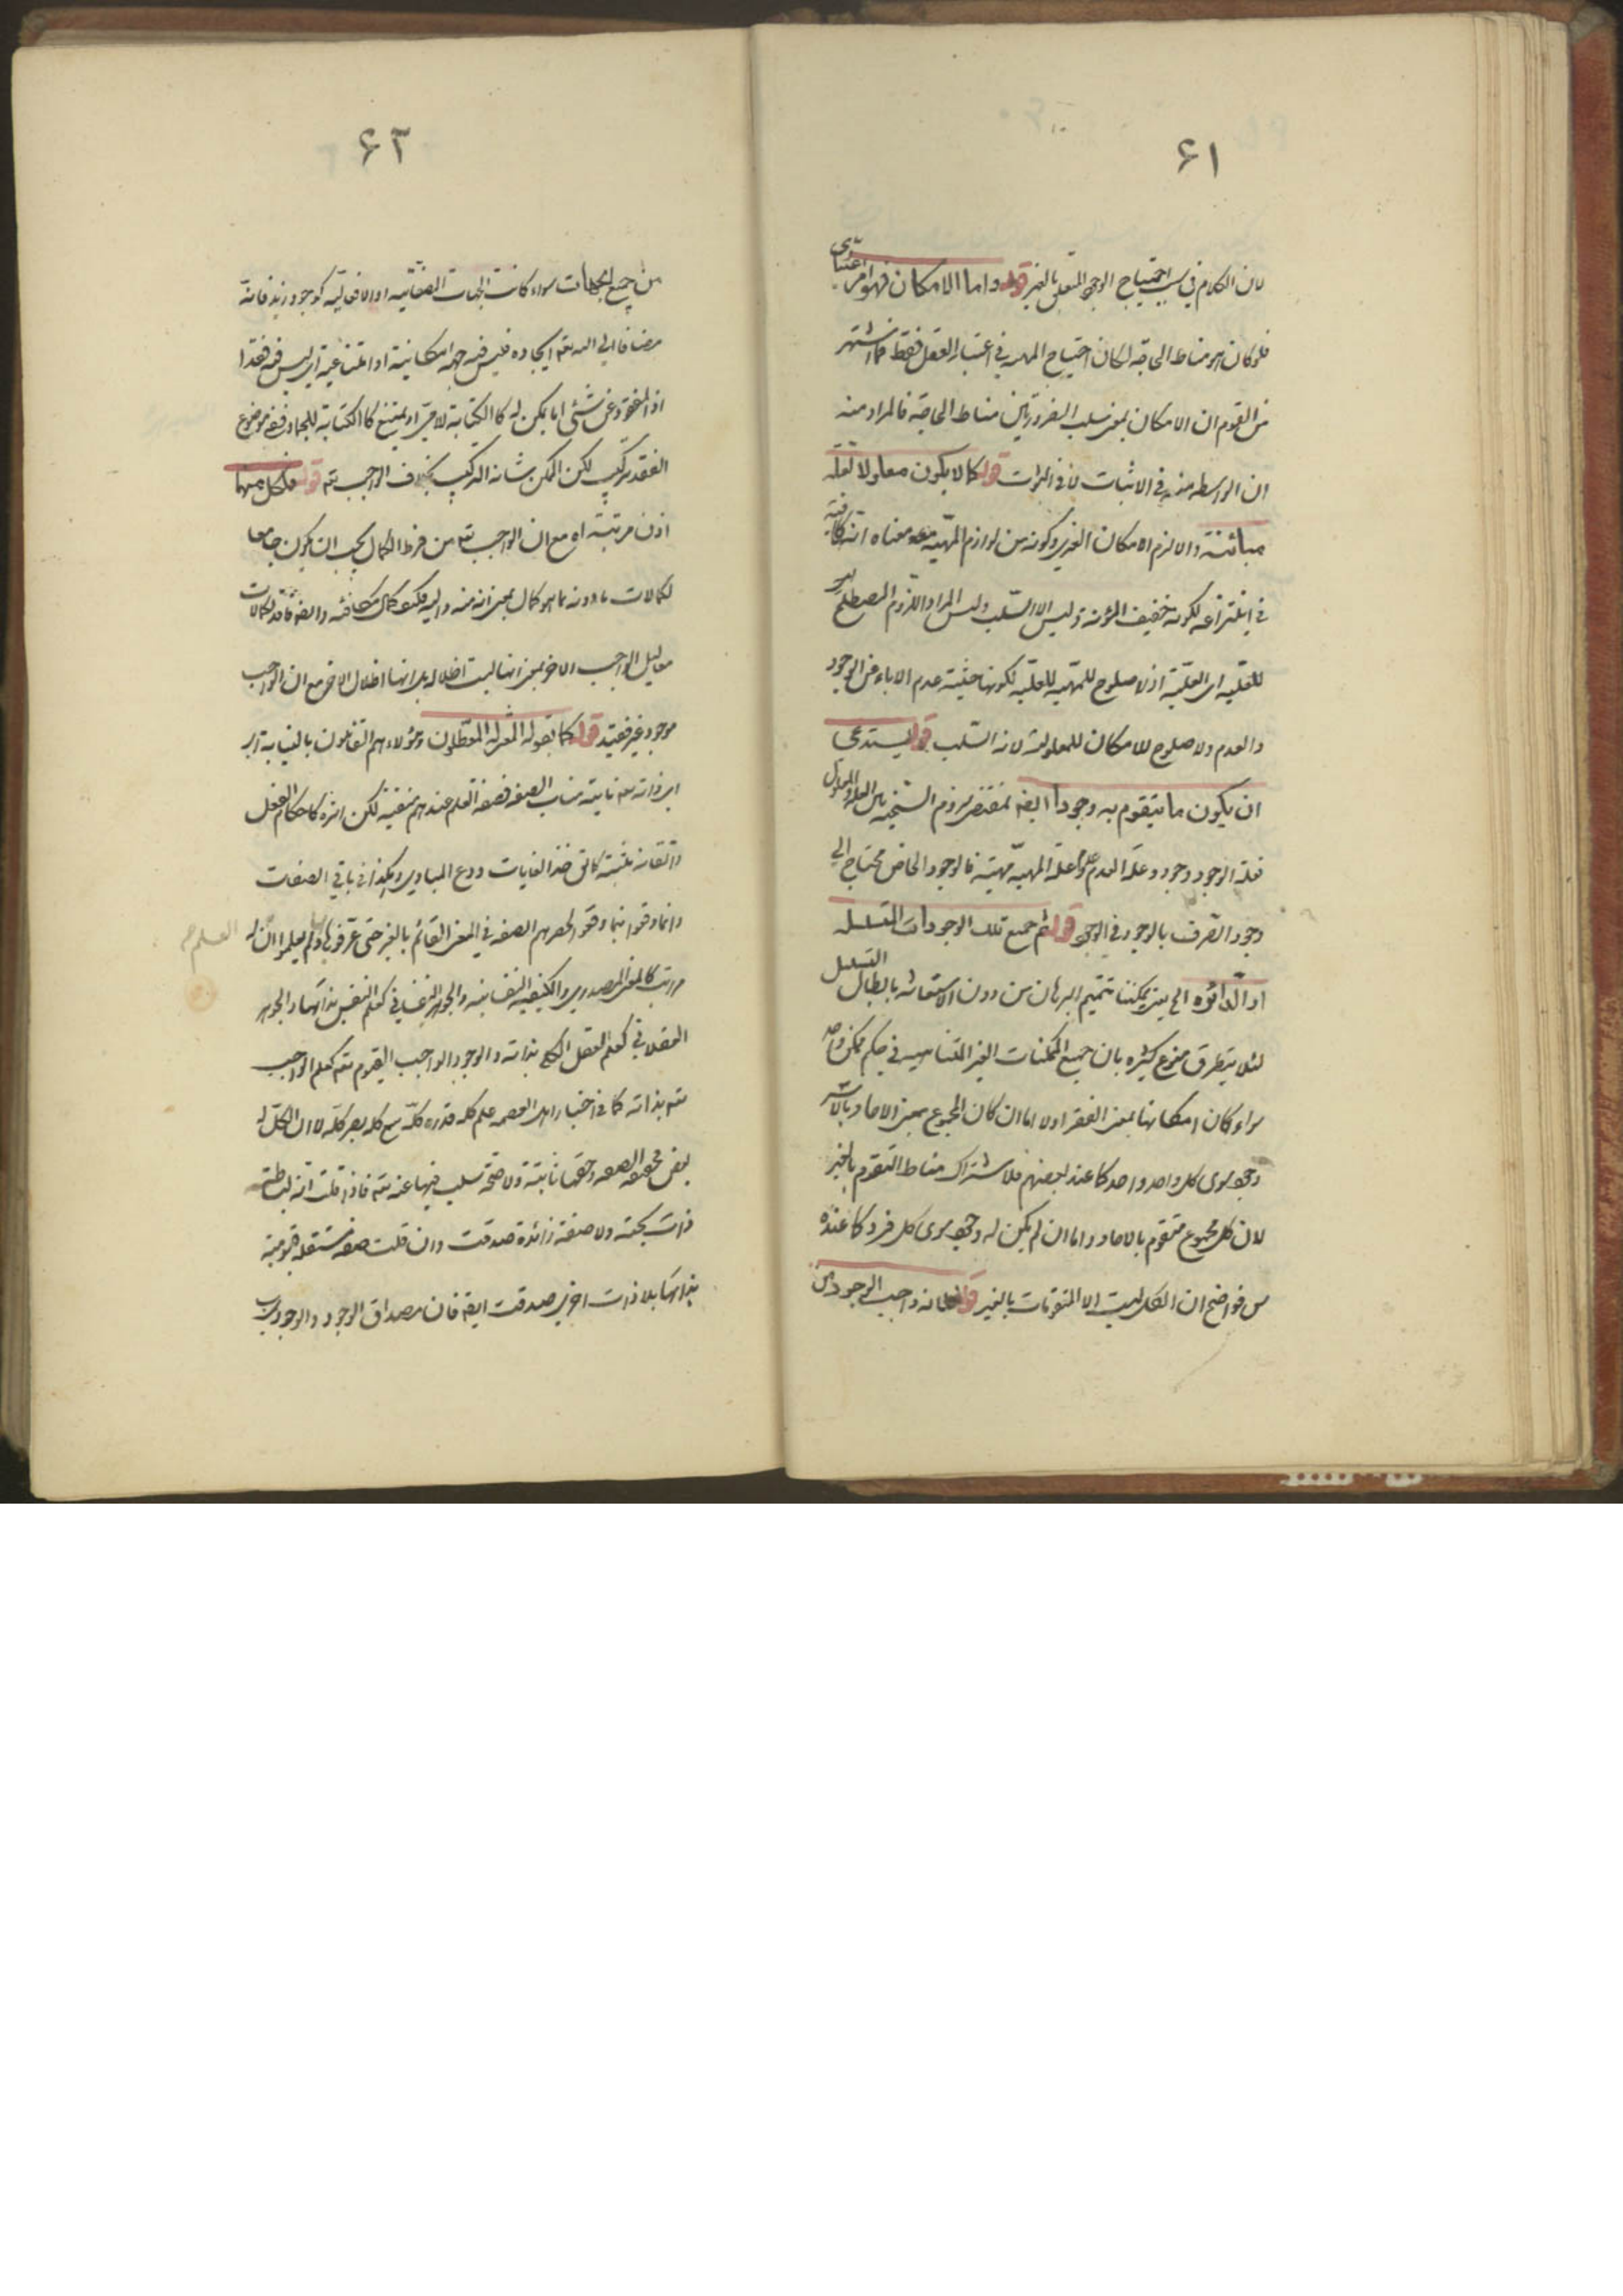 ۶۱
لان الكلام في سبب احتياج الوجود المتعلق بالغير قوله واما الامكان فهو امر اعتباري
فلو كان هو مناط الحاجة لكان احتياج المهيه في اعتبار العقل فقط فما اشتهر
من القوم ان الامكان بمعنى سلب الضرورتين مناط الحاجة فالمراد منه
ان الواسطه منه في الاثبات لا في الثبوت قوله كما لا يكون معلولا لعلة
مباينة والا لزم الامكان الغيري وكونه من لوازم المهيه معناه انه كافية
في انتزاعه لكونه خفيف المؤنة وليس الا السلب وليس المراد اللزوم المصطلح
للعليه اى العلية اذ لا صلوح للمهيه للعليه لكونها حيثية عدم الاباء عن الوجود
والعدم ولا صلوح للامكان للمعلولية لانه السلب قوله يستدعى
ان يكون ما يتقوم به وجودا ايضه بمقتضى لزوم السنخيه بين العلة والمعلول
فعلة الوجود وجود وعلة العدم عدم وعلة المهيه مهية فالوجود الخاص محتاج الى
وجود الصرف بالوجود في الوجود قوله ثم جميع تلك الوجودات المتسلسله
او الدائره الى يمكننا تتميم البرهان من دون الاستعانه بابطال التسلسل
لئلا يتطرق منوع كثيره بان جميع الممكنات الغير المتناهيه في حكم ممكن واحد
سواء كان امكانها بمعنى الفقر او لا اما ان كان المجموع بمعنى الاحاد بالاسر
وجود سوى كل واحد واحد كما عند بعضهم فلاشتراك مناط التقوم بالغير
لان كل مجموع متقوم بالاحاد واما ان لم يكن له وجود سوى كل فرد كما عنده
س فواضح ان الكل ليست الا المتقومات بالغير قوله واجب الوجود من
۶۲
من جميع الجهات سواء كانت الجهات الصفاتيه او الافعاليه كوجود زيد فانه
مضافا الى الله تعه ايجاده فليس فيه جهه امكانية او امتناعية اى ليس فيه فقد
اذ المفقود عن شئ اما يمكن له كالكتابة لاخر او يمتنع كالكتابة للجماد ففيه موضوع
الفقد تركيب لكن الممكن شانه التركيب بخلاف الواجب تعه قوله فلكل منهما
اذن مرتبة اه مع ان الواجب تعه من فرط الكمال يجب ان يكون جامعا
لكمالات ما دونه بما هو كمال بمعنى انه منه واليه فكيف كمال مكافئه وايضه فاقد لكمالات
معاليل الواجب الاخر بمعنى انها ليست اظلاله بل انها اظلال الاخر مع ان الواجب
موجود غير فقيد قوله كما يقوله المعتزله المعطلون وهؤلاء هم القائلون بالنيابة اى
ان ذاته تعه نايبة مناب الصفه فصفة العلم عندهم منفية لكن اثره كاحكام الفعل
واتقانه مثبتة كما يق خذ الغايات ودع المبادي وهكذا في باقي الصفات
وانما وقعوا فيما وقعوا لحصرهم الصفه في المعنى القائم بالغير حتى عرفوها بها ولم يعلموا ان له العلم
مراتب كالمعنى المصدري والكيفيه النفسانيه والجوهر النفساني كعلم النفس بذاتها والجوهر
العقلاني كعلم العقل الكلى بذاته والوجود الواجب القيوم تعه كعلم الواجب
تعه بذاته كما في اخبار اهل العصمه علم كله قدره كله سمع كله بصر كله لا ان الكل له
بعض فحقيقه الصفه وحقها ثابتة ولا صحة سلب فيها عنه تعه فاذا قلت انه لبساطته
ذات بحته ولا صفة زائدة صدقت وان قلت صفه مستقله قيومية
بذاتها بلا ذات اخرى صدقت ايضه فان مصداق الوجود والوجوب